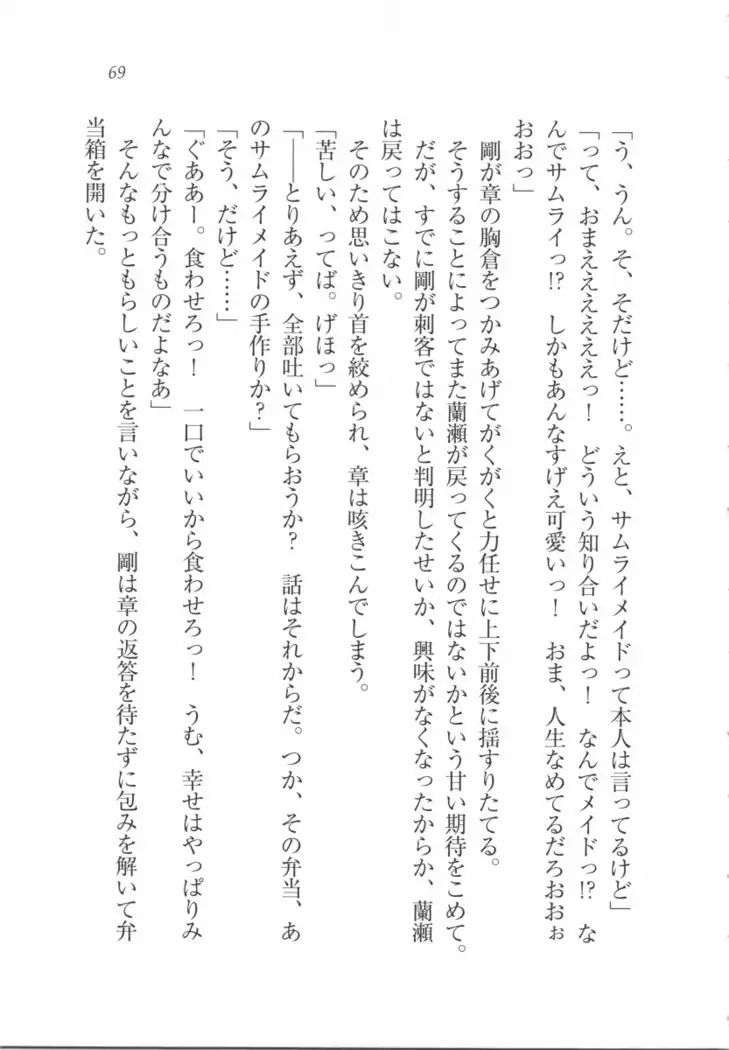 69
「う、うん。そ、そだけど……。えと、サムライメイドって本人は言ってるけど」
「って、おまえええええっ！　どういう知り合いだよっ！　なんでメイドっ!?　な
んでサムライっ!?　しかもあんなすげえ可愛いっ！　おま、人生なめてるだろおおぉ
おおっ」
　剛が章の胸倉をつかみあげてがくがくと力任せに上下前後に揺すりたてる。
　そうすることによってまた蘭瀬が戻ってくるのではないかという甘い期待をこめて。
　だが、すでに剛が刺客ではないと判明したせいか、興味がなくなったからか、蘭瀬
は戻ってはこない。
　そのため思いきり首を絞められ、章は咳きこんでしまう。
「苦しい、ってば。げほっ」
「――とりあえず、全部吐いてもらおうか？　話はそれからだ。つか、その弁当、あ
のサムライメイドの手作りか？」
「そう、だけど……」
「ぐああー。食わせろっ！　一口でいいから食わせろっ！　うむ、幸せはやっぱりみ
んなで分け合うものだよなあ」
　そんなもっともらしいことを言いながら、剛は章の返答を待たずに包みを解いて弁
当箱を開いた。